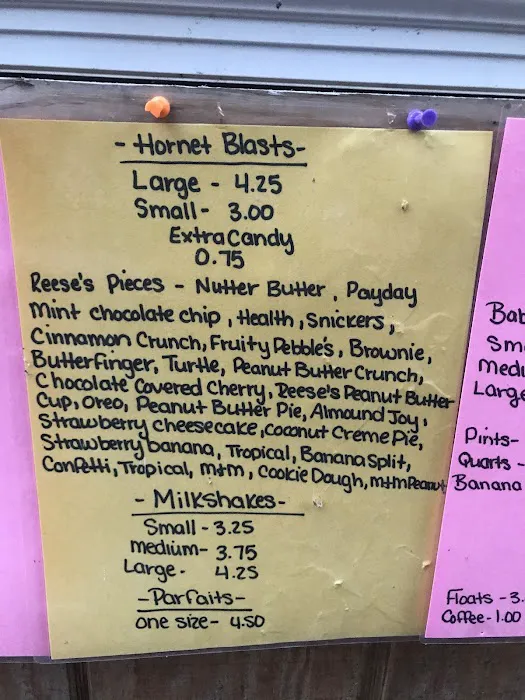 - Hornet Blasts-
Large - 4.25
Small- 3.00
Extra Candy
0.75
Reese's Pieces - Nutter Butter, Payday
Mint chocolate chip, Health, Snickers,
Cinnamon Crunch, Fruity Pebble's, Brownie,
Butterfinger, Turtle, Peanut Butter Crunch,
Chocolate Covered Cherry, Reese's Peanut Butter
Cup, Oreo, Peanut Butter Pie, Almound Joy,
Strawberry cheesecake, coconut Creme Pie,
Strawberry banana, Tropical, Banana Split,
Confetti, Tropical, m+m, Cookie Dough, m+m Peanut
- Milkshakes-
Small - 3.25
medium- 3.75
Large- 4.25
-Parfaits-
one size- 4.50
Pints-
Quarts -
Banana
Floats - 3.
Coffee - 1.00